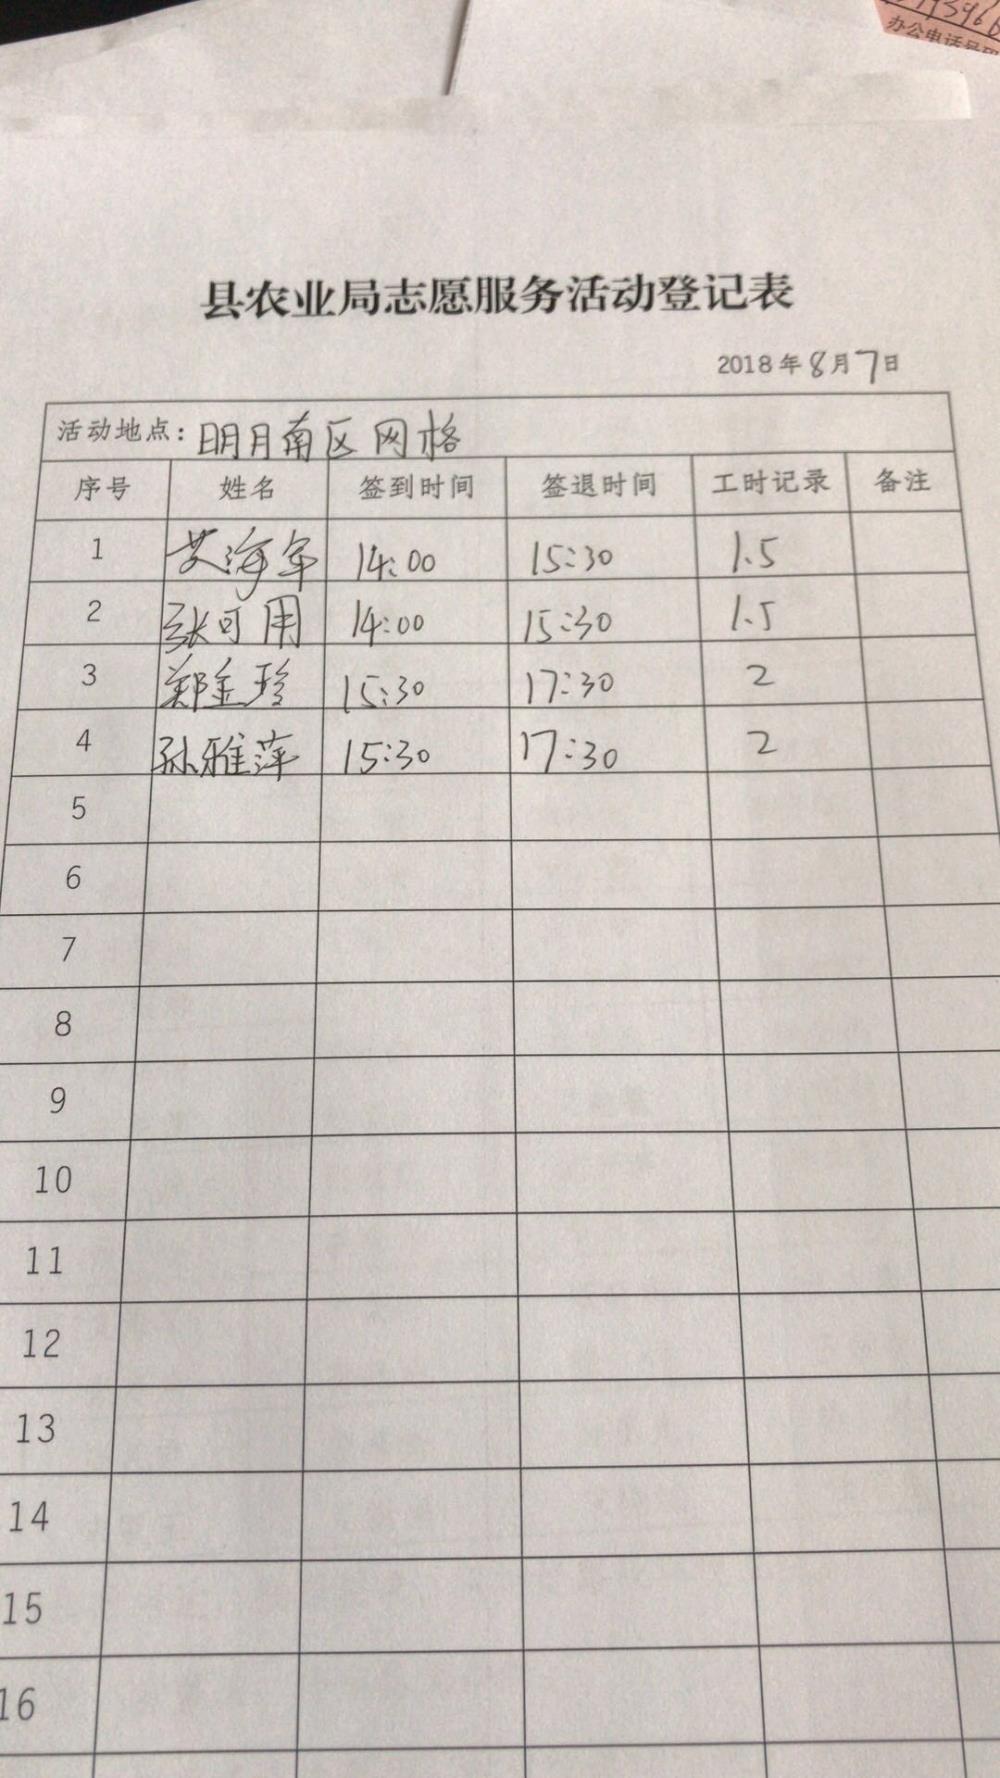 办公电话号码
县农业局志愿服务活动登记表
2018年8月7日
活动地点：明月南区网格
序号 姓名 签到时间 签退时间 工时记录 备注
1 艾海军 14:00 15:30 1.5
2 张可用 14:00 15:30 1.5
3 郑金珍 15:30 17:30 2
4 孙雅萍 15:30 17:30 2
5
6
7
8
9
10
11
12
13
14
15
16